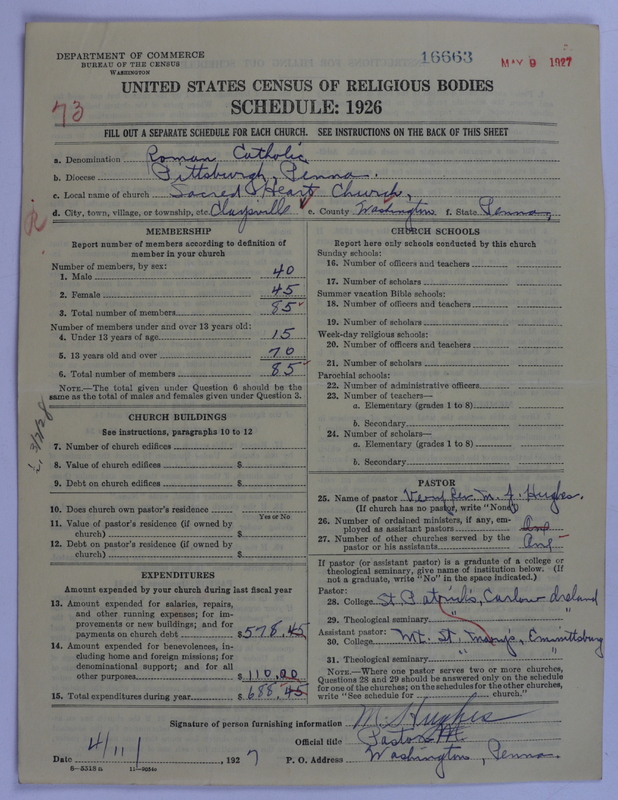 DEPARTMENT OF COMMERCE
BUREAU OF THE CENSUS
WASHINGTON
16663
MAY 9 1927
UNITED STATES CENSUS OF RELIGIOUS BODIES
SCHEDULE: 1926
73
FILL OUT A SEPARATE SCHEDULE FOR EACH CHURCH. SEE INSTRUCTIONS ON THE BACK OF THIS SHEET
a. Denomination Roman Catholic
b. Diocese Pittsburgh, Penna.
c. Local name of church Sacred Heart Church,
d. City, town, village, or township, etc. Claysville e. County Washington f. State Penna,
MEMBERSHIP
Report number of members according to definition of
member in your church
Number of members, by sex:
1. Male 40
2. Female 45
3. Total number of members 85
Number of members under and over 13 years old:
4. Under 13 years of age 15
5. 13 years old and over 70
6. Total number of members 85
NOTE.—The total given under Question 6 should be the
same as the total of males and females given under Question 3.
CHURCH BUILDINGS
See instructions, paragraphs 10 to 12
7. Number of church edifices
8. Value of church edifices $
9. Debt on church edifices $
10. Does church own pastor's residence
Yes or No
11. Value of pastor's residence (if owned by
church) $
12. Debt on pastor's residence (if owned by
church) $
EXPENDITURES
Amount expended by your church during last fiscal year
13. Amount expended for salaries, repairs,
and other running expenses; for im-
provements or new buildings; and for
payments on church debt $578.45
14. Amount expended for benevolences, in-
cluding home and foreign missions; for
denominational support; and for all
other purposes $110.00
15. Total expenditures during year $688.45
CHURCH SCHOOLS
Report here only schools conducted by this church
Sunday schools:
16. Number of officers and teachers
17. Number of scholars
Summer vacation Bible schools:
18. Number of officers and teachers
19. Number of scholars
Week-day religious schools:
20. Number of officers and teachers
21. Number of scholars
Parochial schools:
22. Number of administrative officers
23. Number of teachers—
a. Elementary (grades 1 to 8)
b. Secondary
24. Number of scholars—
a. Elementary (grades 1 to 8)
b. Secondary
PASTOR
25. Name of pastor Very Rev. M. J. Hughes.
(If church has no pastor, write "None")
26. Number of ordained ministers, if any, em-
ployed as assistant pastors One
27. Number of other churches served by the
pastor or his assistants One
If pastor (or assistant pastor) is a graduate of a college or
theological seminary, give name of institution below. (If
not a graduate, write "No" in the space indicated.)
Pastor:
28. College St. Patrick's, Carlow Ireland
29. Theological seminary " "
Assistant pastor:
30. College Mt. St. Mary's, Emmittsburg
31. Theological seminary " "
NOTE.—Where one pastor serves two or more churches,
Questions 28 and 29 should be answered only on the schedule
for one of the churches; on the schedules for the other churches,
write "See schedule for church."
Signature of person furnishing information M. J. Hughes
Official title Pastor
Date 4/11/, 1927 P. O. Address Washington, Penna.